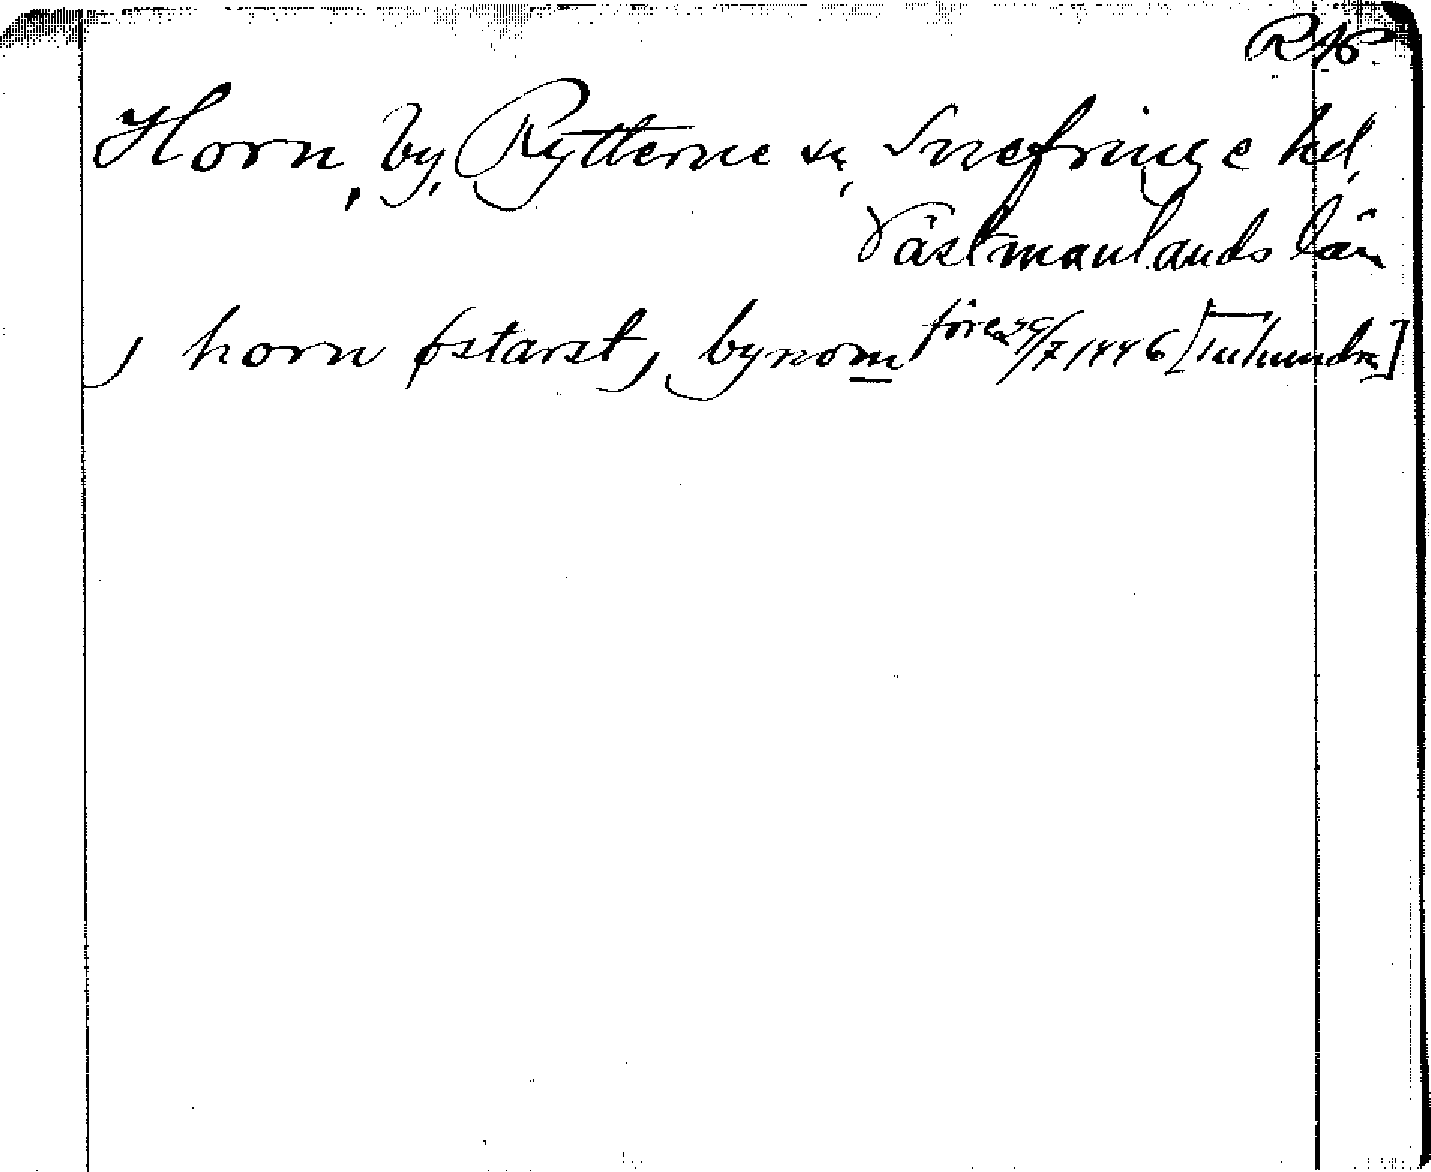 RAp
Horn, by, Rytterne sn, Snefringe hd,
Västmanlands län
j horn østarst, j bynom före 29/7 1446 [Tuhundra]